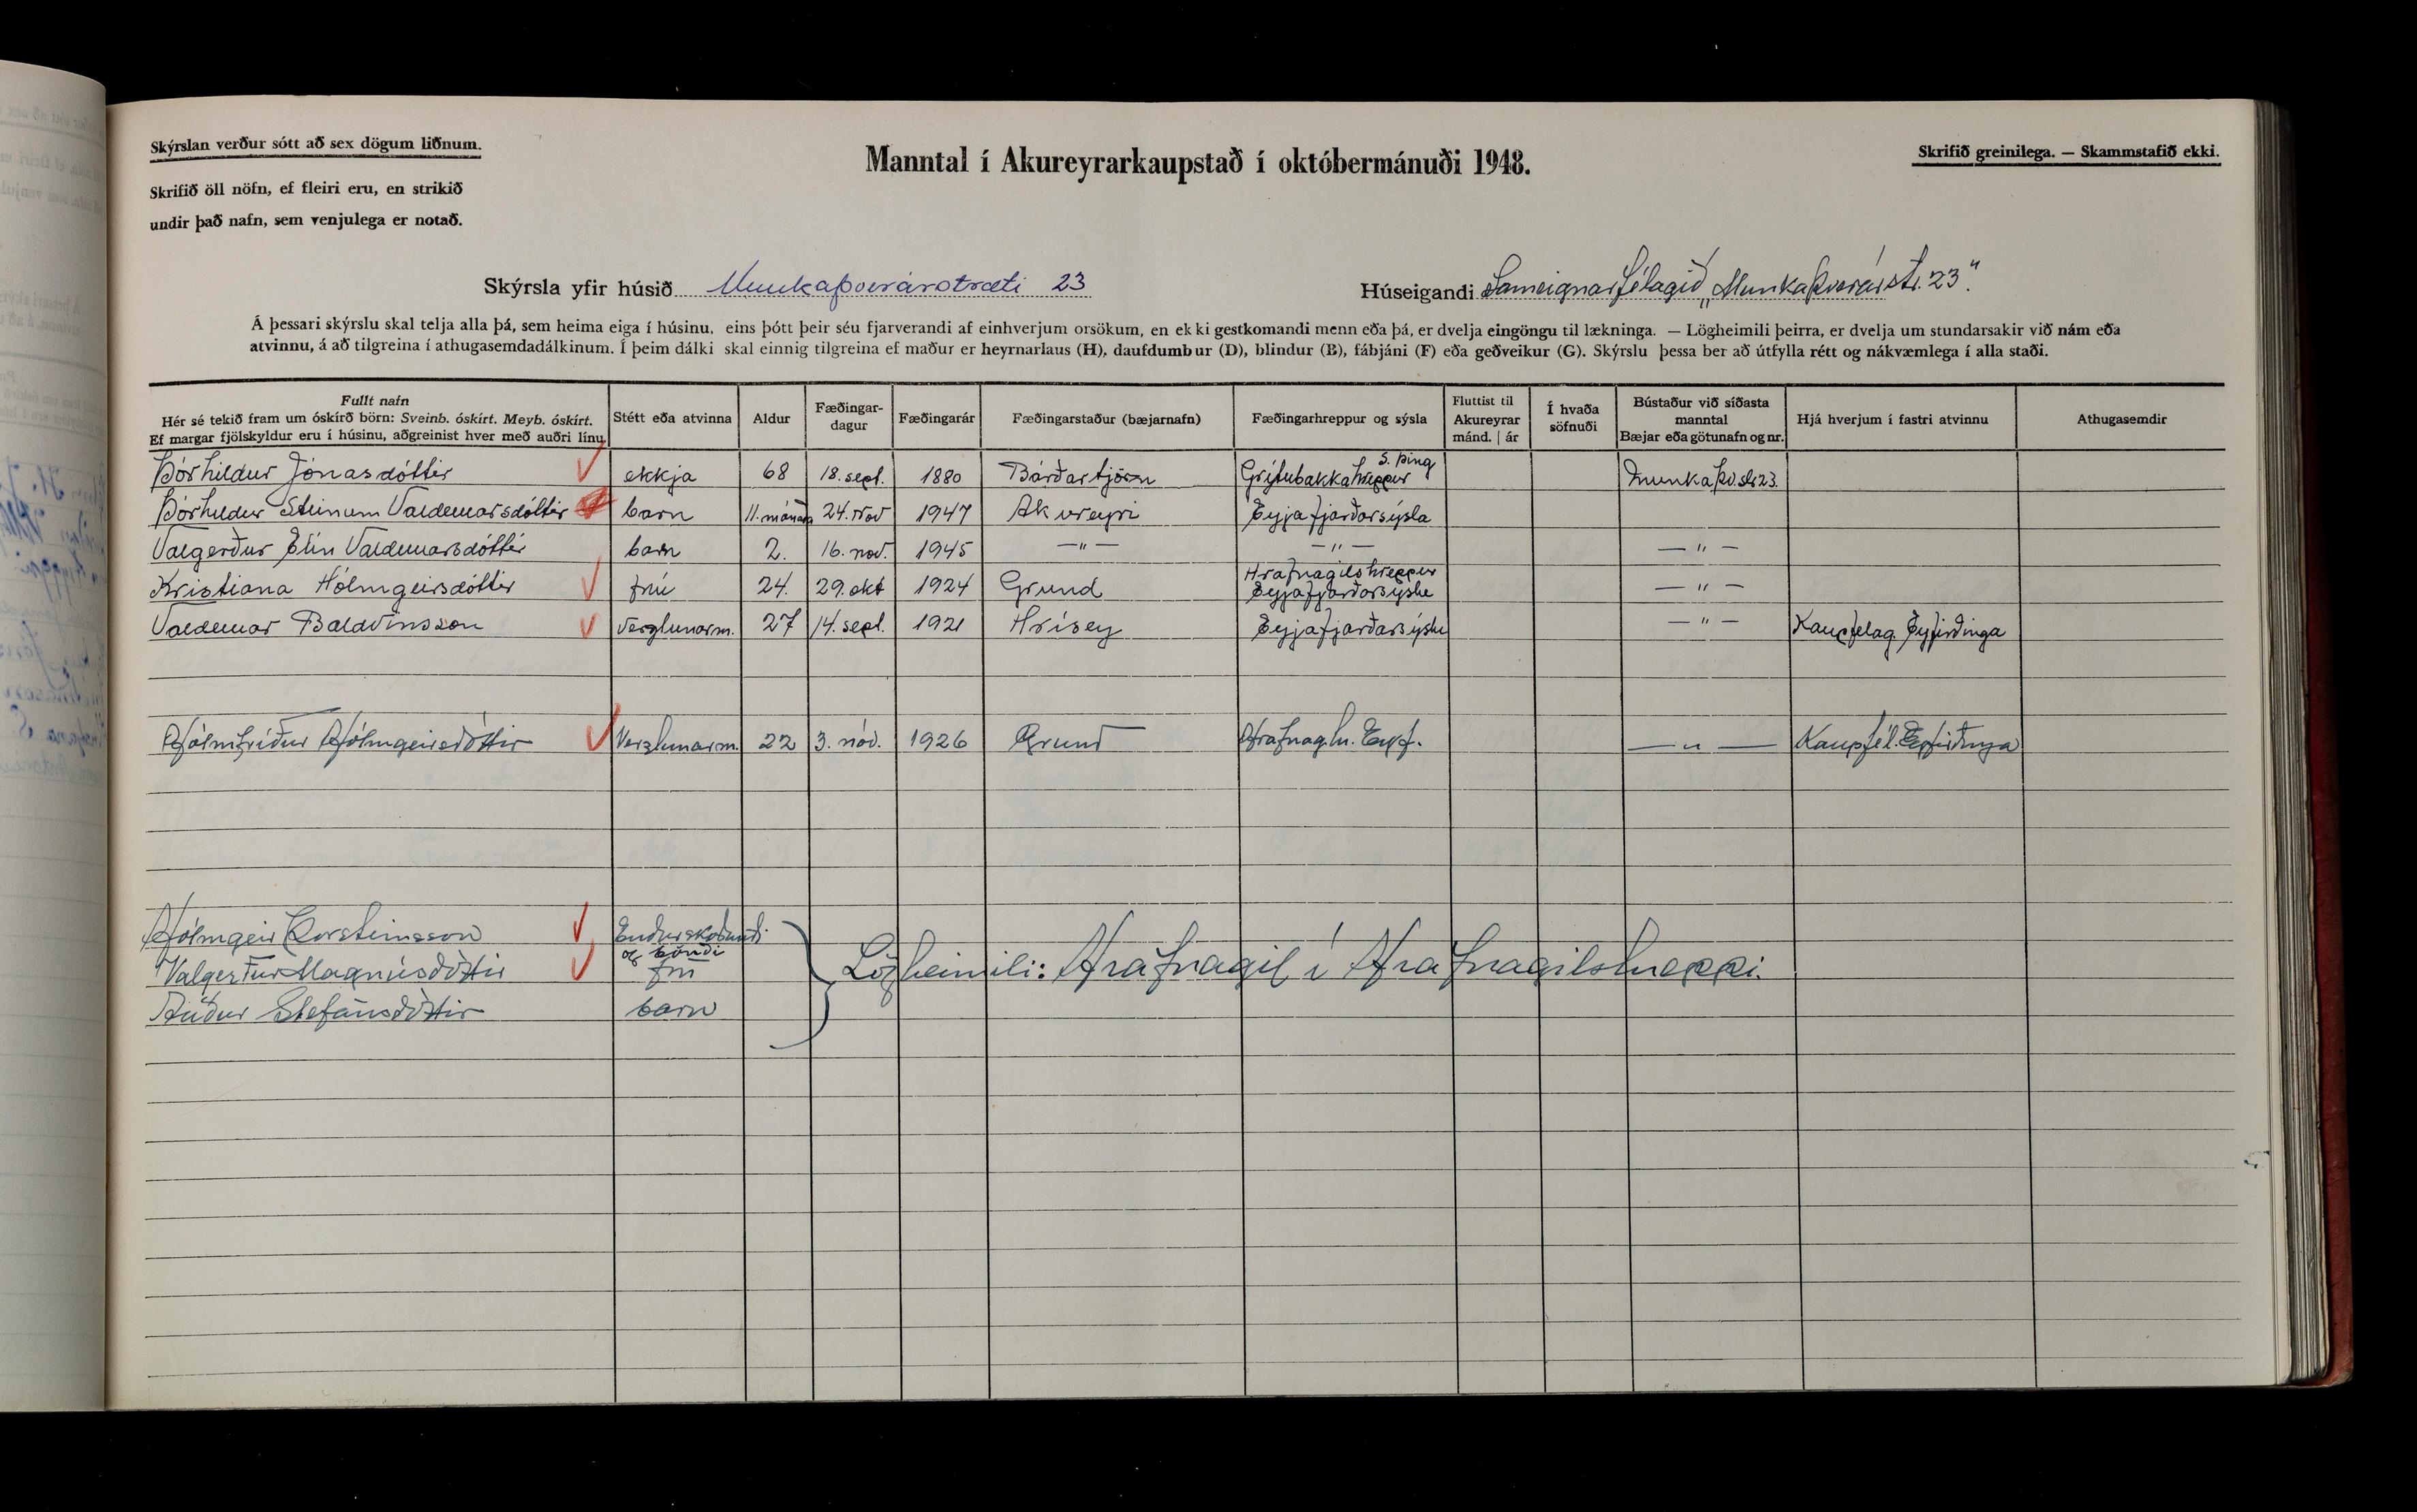 Skýrslan verður sótt að sex dögum liðnum.
Skrifið öll nöfn, ef fleiri eru, en strikið
undir það nafn, sem venjulega er notað.
Manntal í Akureyrarkaupstað í októbermánuði 1948.
Skrifið greinilega. — Skammstafið ekki.
Skýrsla yfir húsið Munkaþverárstræti 23
Húseigandi Sameignarfélagið „Munkaþverárstr. 23“.
Á þessari skýrslu skal telja alla þá, sem heima eiga í húsinu, eins þótt þeir séu fjarverandi af einhverjum orsökum, en ekki gestkomandi menn eða þá, er dvelja eingöngu til lækninga. — Lögheimili þeirra, er dvelja um stundarsakir við nám eða
atvinnu, á að tilgreina í athugasemdadálkinum. Í þeim dálki skal einnig tilgreina ef maður er heyrnarlaus (H), daufdumbur (D), blindur (B), fábjáni (F) eða geðveikur (G). Skýrslu þessa ber að útfylla rétt og nákvæmlega í alla staði.
Fullt nafn
Hér sé tekið fram um óskírð börn: Sveinb. óskírt. Meyb. óskírt.
Ef margar fjölskyldur eru í húsinu, aðgreinist hver með auðri línu
Stétt eða atvinna
Aldur
Fæðingar-
dagur
Fæðingarár
Fæðingarstaður (bæjarnafn)
Fæðingarhreppur og sýsla
Fluttist til
Akureyrar
mánd. | ár
Í hvaða
söfnuði
Bústaður við síðasta
manntal
Bæjar eða götunafn og nr.
Hjá hverjum í fastri atvinnu
Athugasemdir
Þórhildur Jónasdóttir ekkja 68 18. sept. 1880 Bárðartjörn Grýtubakkahreppur S. Þing Munkaþv.str 23.
Þórhildur Steinunn Valdemarsdóttir barn 11. mánaða 24. nóv 1947 Akureyri Eyjafjarðarsýsla
Valgerður Elín Valdemarsdóttir barn 2. 16. nóv. 1945 — " — — " — — " —
Kristiana Hólmgeirsdóttir frú 24. 29. okt 1924 Grund Hrafnagilshreppur Eyjafjarðarsýslu — " —
Valdemar Baldvinsson Verzlunarm. 27 14. sept. 1921 Hrísey Eyjafjarðarsýslu — " — Kaupfelag. Eyfirðinga
Hólmfríður Hólmgeirsdóttir Verzlunarm. 22 3. nóv. 1926 Grund Hrafnag.hr. Eyjf. — " — Kaupfél. Eyfirðinga
Hólmgeir Þorsteinsson Endurskoðandi og bóndi
Valgerður Magnúsdóttir frú
Lögheimili: Hrafnagil í Hrafnagilshreppi.
Auður Stefánsdóttir barn